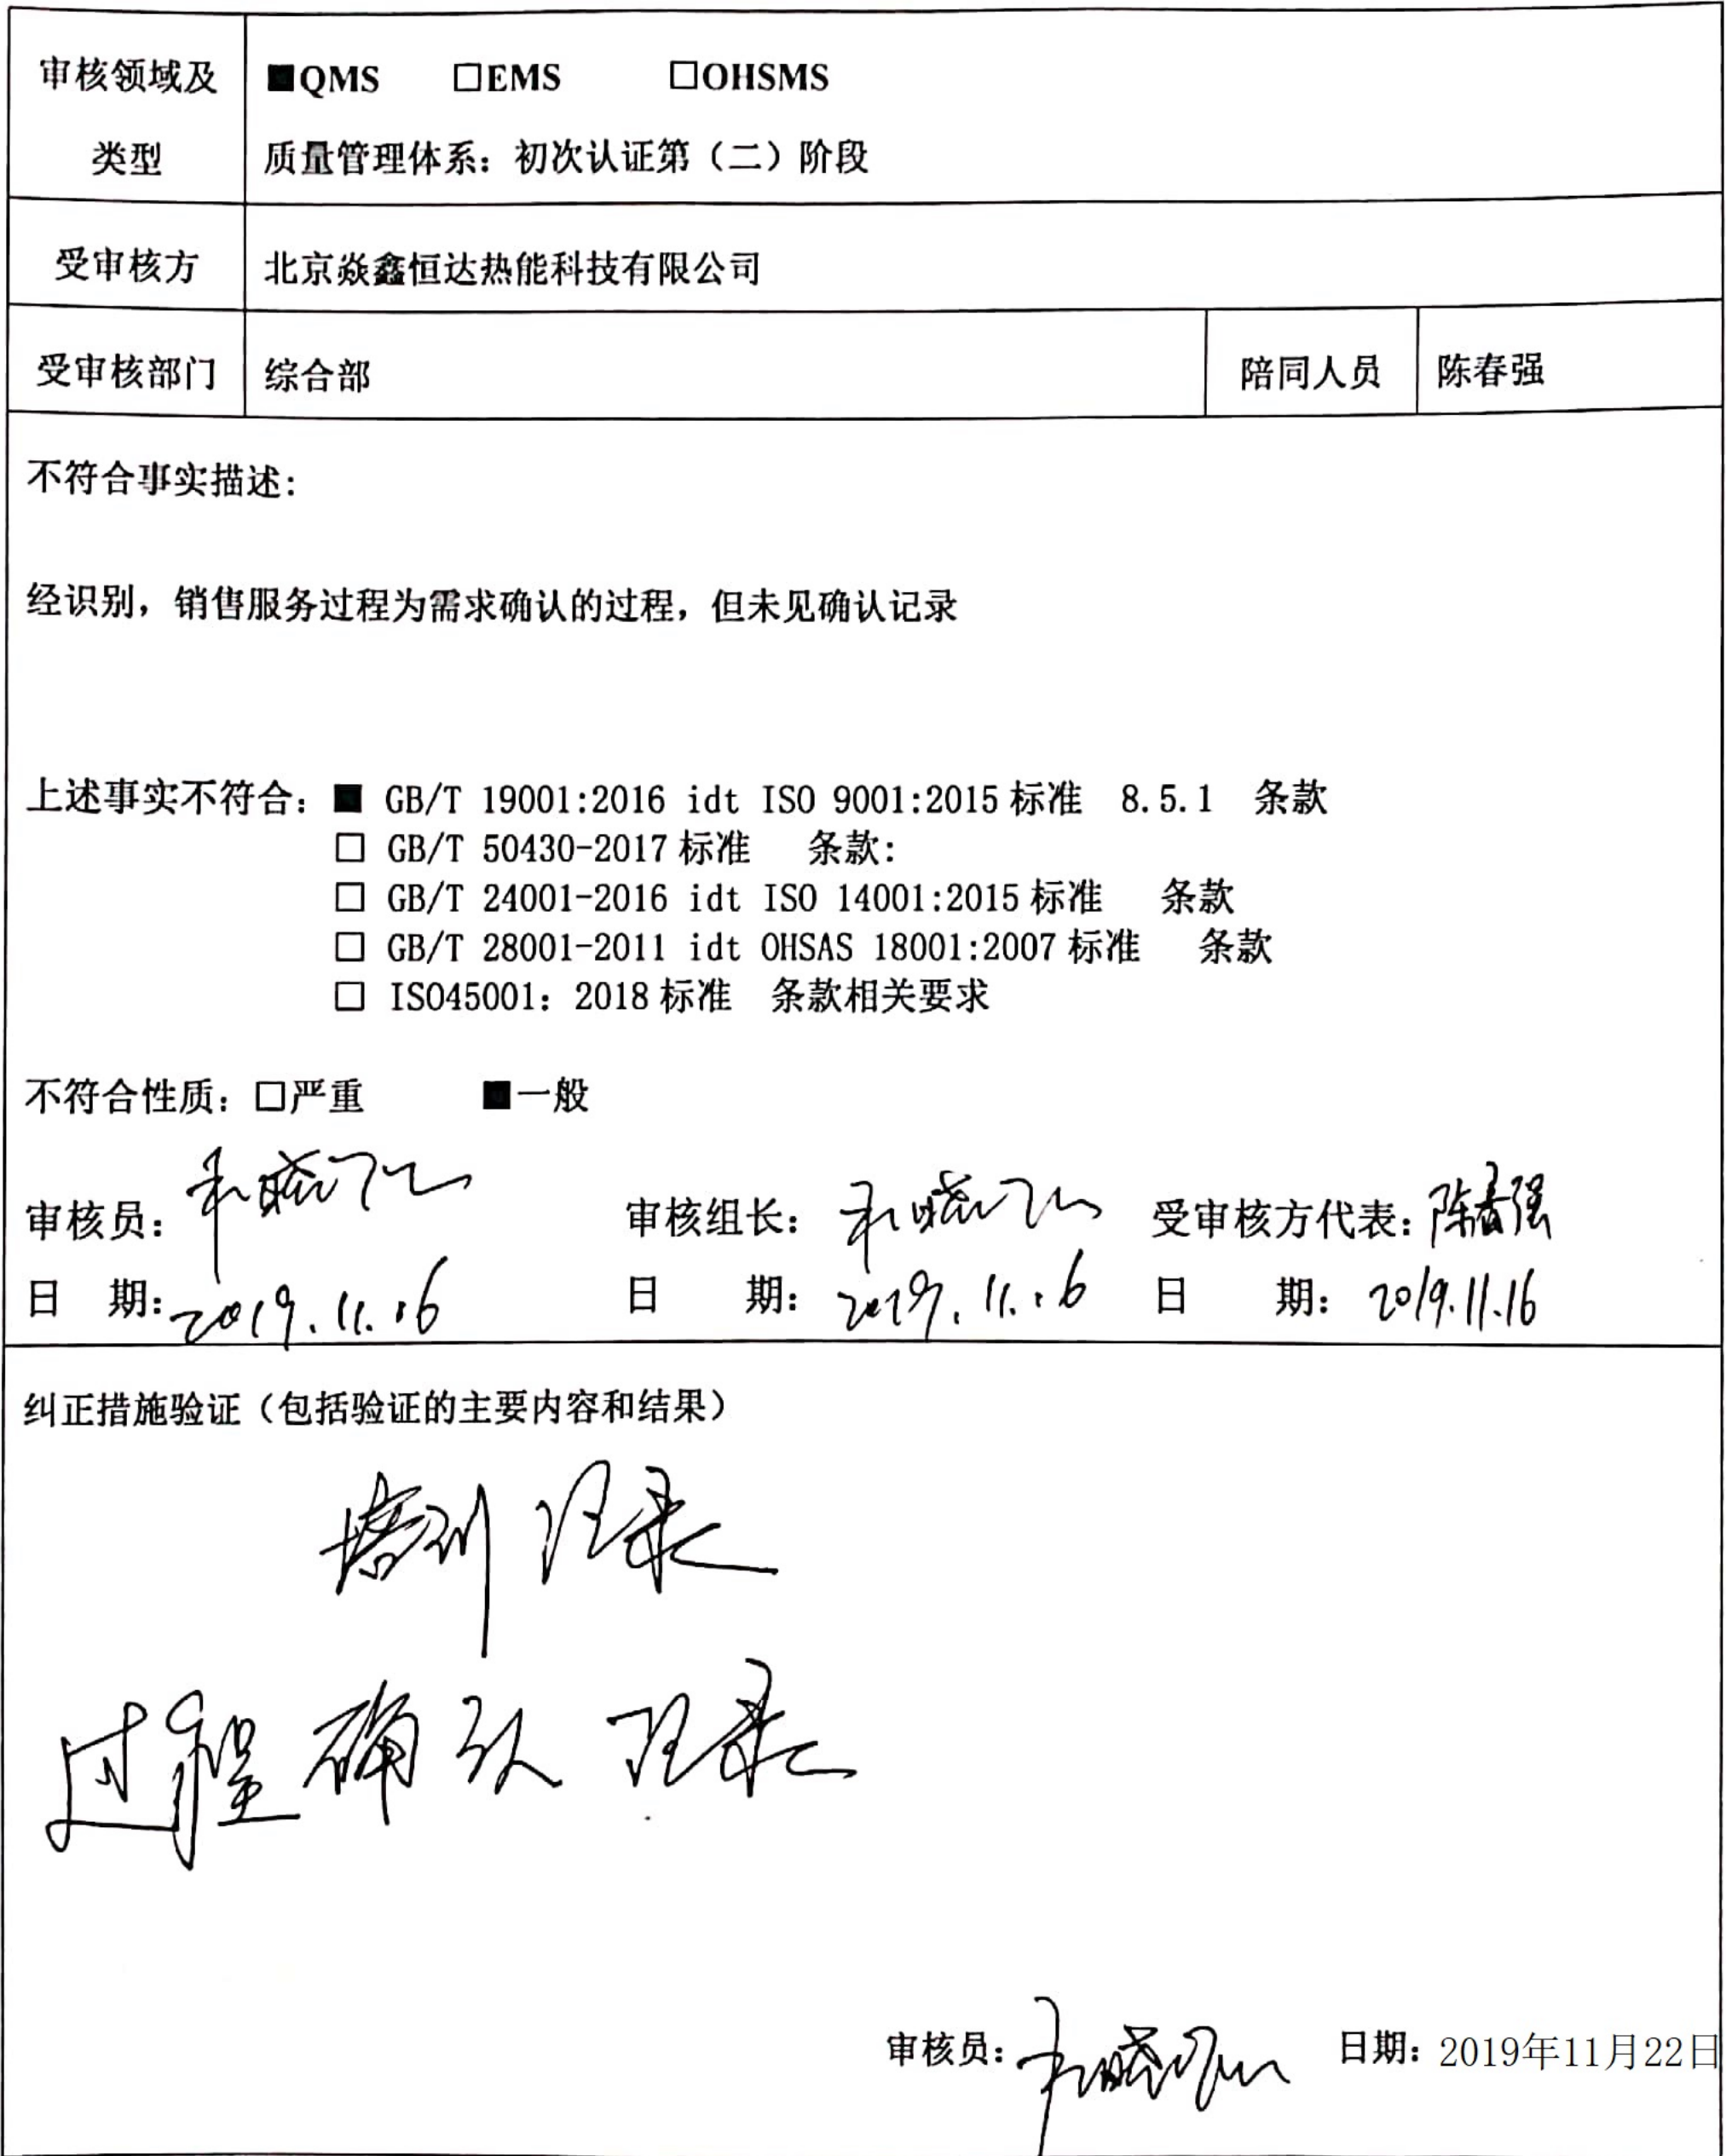 审核领域及
类型
■QMS □EMS □OHSMS
质量管理体系：初次认证第（二）阶段
受审核方 北京焱鑫恒达热能科技有限公司
受审核部门 综合部 陪同人员 陈春强
不符合事实描述：
经识别，销售服务过程为需求确认的过程，但未见确认记录
上述事实不符合：■ GB/T 19001:2016 idt ISO 9001:2015标准 8.5.1 条款
□ GB/T 50430-2017标准 条款：
□ GB/T 24001-2016 idt ISO 14001:2015标准 条款
□ GB/T 28001-2011 idt OHSAS 18001:2007标准 条款
□ ISO45001：2018标准 条款相关要求
不符合性质：□严重 ■一般
审核员： 审核组长： 受审核方代表：陈春强
日 期：2019.11.16 日 期：2019.11.16 日 期：2019.11.16
纠正措施验证（包括验证的主要内容和结果）
培训记录
过程确认记录
审核员： 日期：2019年11月22日